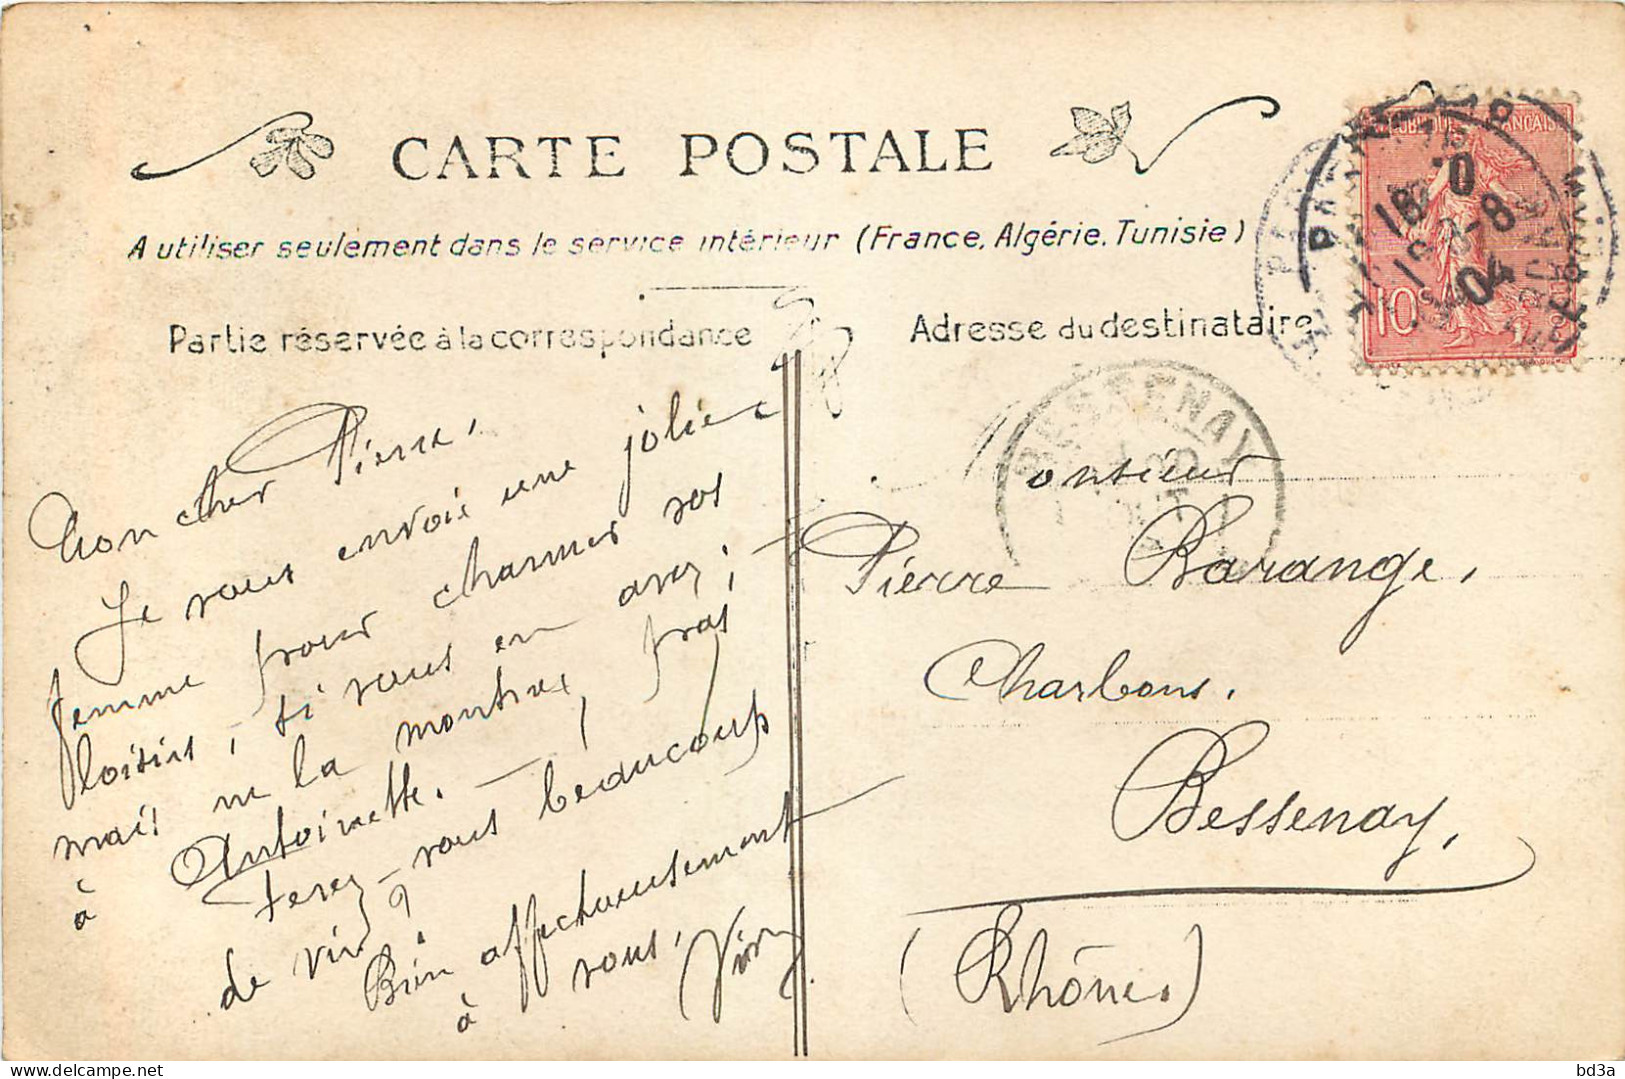 CARTE POSTALE
A utiliser seulement dans le service intérieur (France, Algérie, Tunisie)
Partie réservée à la correspondance
Adresse du destinataire
Mon cher Pierre,
Je vous envoie une jolie
femme pour charmer vos
loisirs, si vous en avez;
mais ne la montrez pas
à Antoinette. —
Ferez-vous beaucoup
de vin?
Bien affectueusement
à vous,
Monsieur
Pierre Barange,
Charbons.
Bessenay,
(Rhône)
10
BESSENAY
18
8
04
bd3a